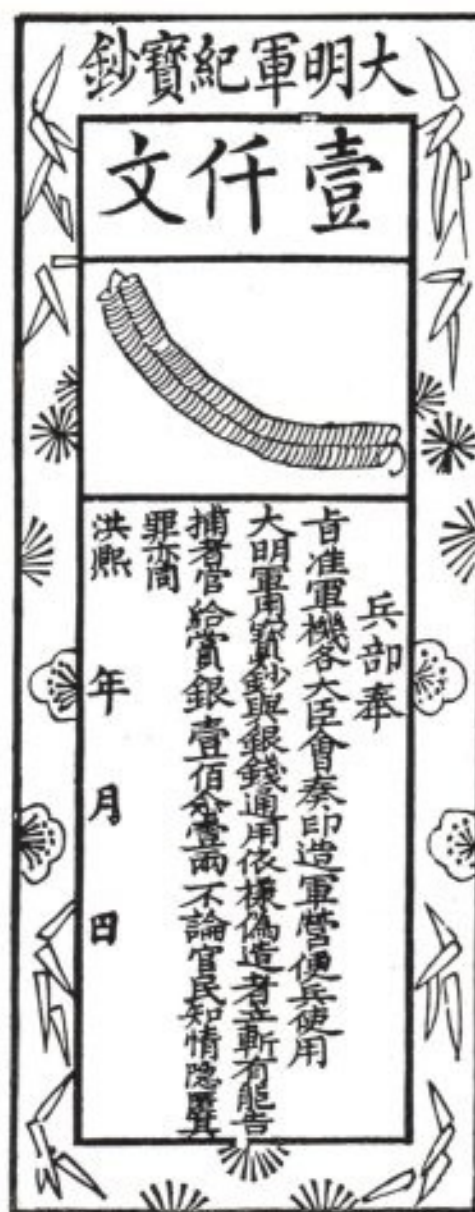 大明軍紀寶鈔
壹仟文
兵部奉
旨准軍機各大臣會奏印造軍營便兵使用
大明軍用寶鈔與銀錢通用依樣偽造者立斬有能告
捕者官給賞銀壹佰兩不論官民知情隐匿其
罪亦同
洪熙 年 月 日